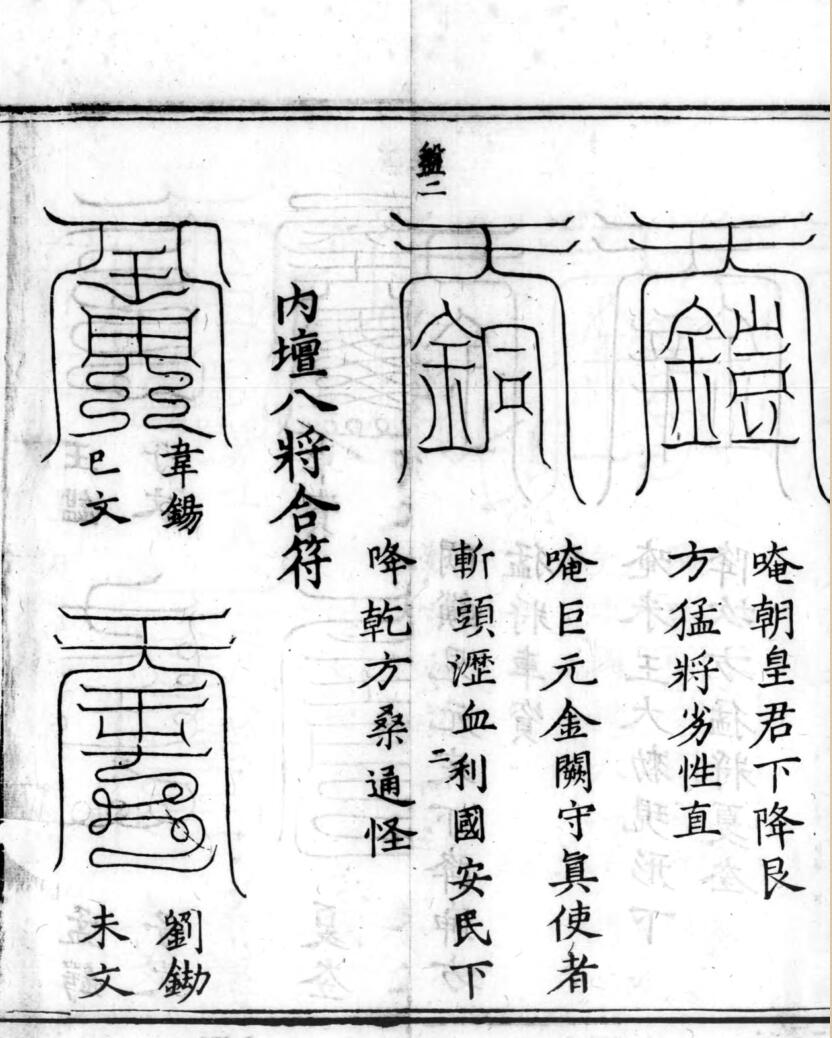 鎧
唵朝皇君下降艮
方猛將劣性直
銅
唵巨元金闕守眞使者
斬頭瀝血利國安民下
二
降乾方桑通怪
盤二
內壇八將合符
韋錫
巳文
劉鋤
未文